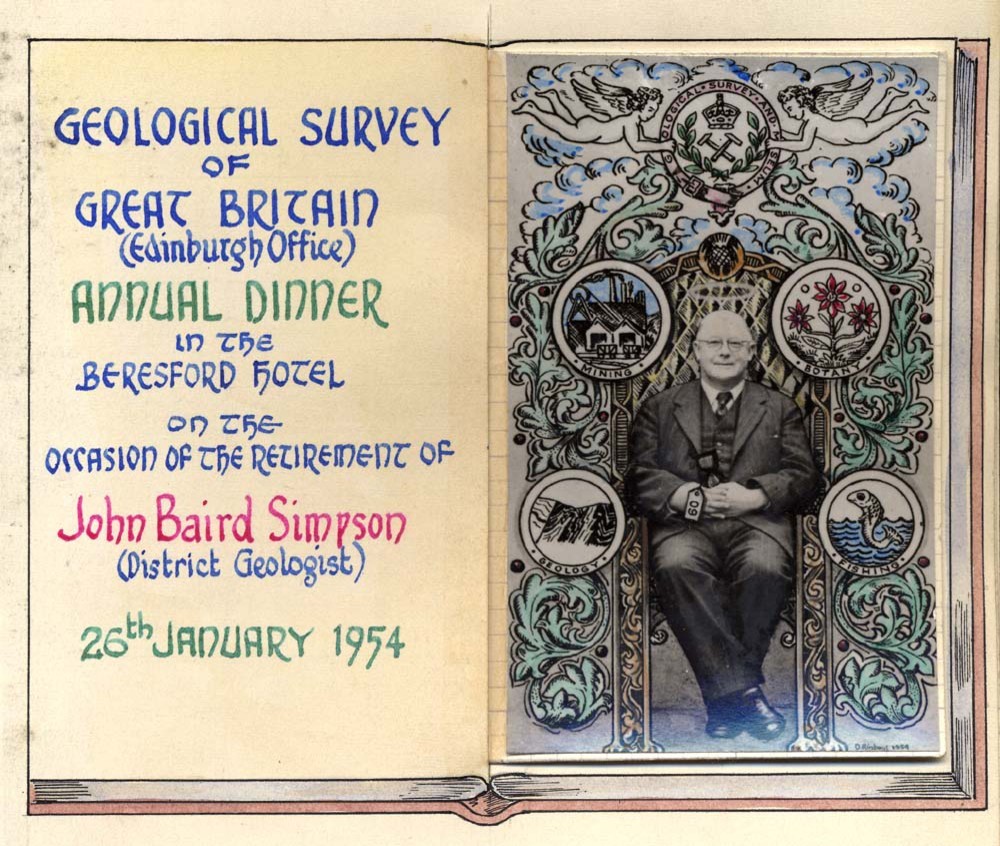 GEOLOGICAL SURVEY
OF
GREAT BRITAIN
(Edinburgh Office)
ANNUAL DINNER
IN THE
BERESFORD HOTEL
ON THE
OCCASION OF THE RETIREMENT OF
John Baird Simpson
(District Geologist)
26th JANUARY 1954
OLOGICAL·SURVEY·AND·M
MINING
BOTANY
60
·GEOLOGY·
·FISHING·
1954